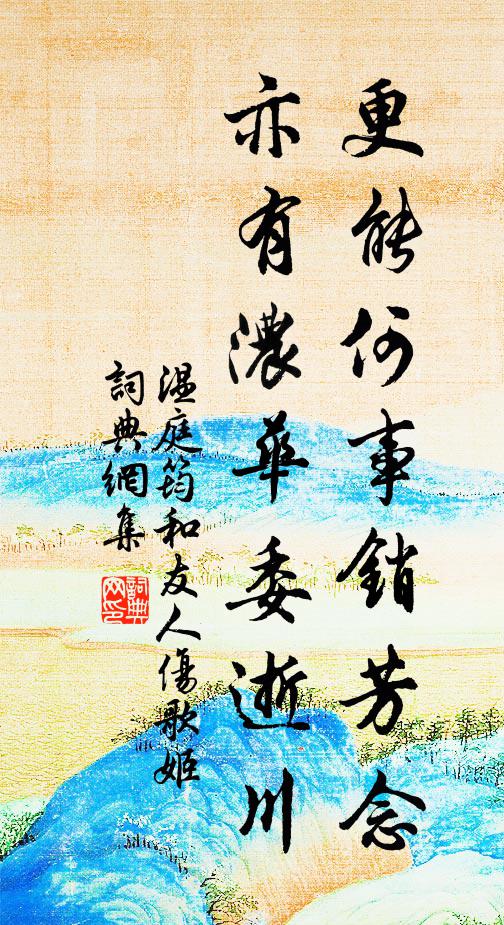 更能何事銷芳念
亦有濃華委逝川
溫庭筠和友人傷歌姬
詞典網集
詞典